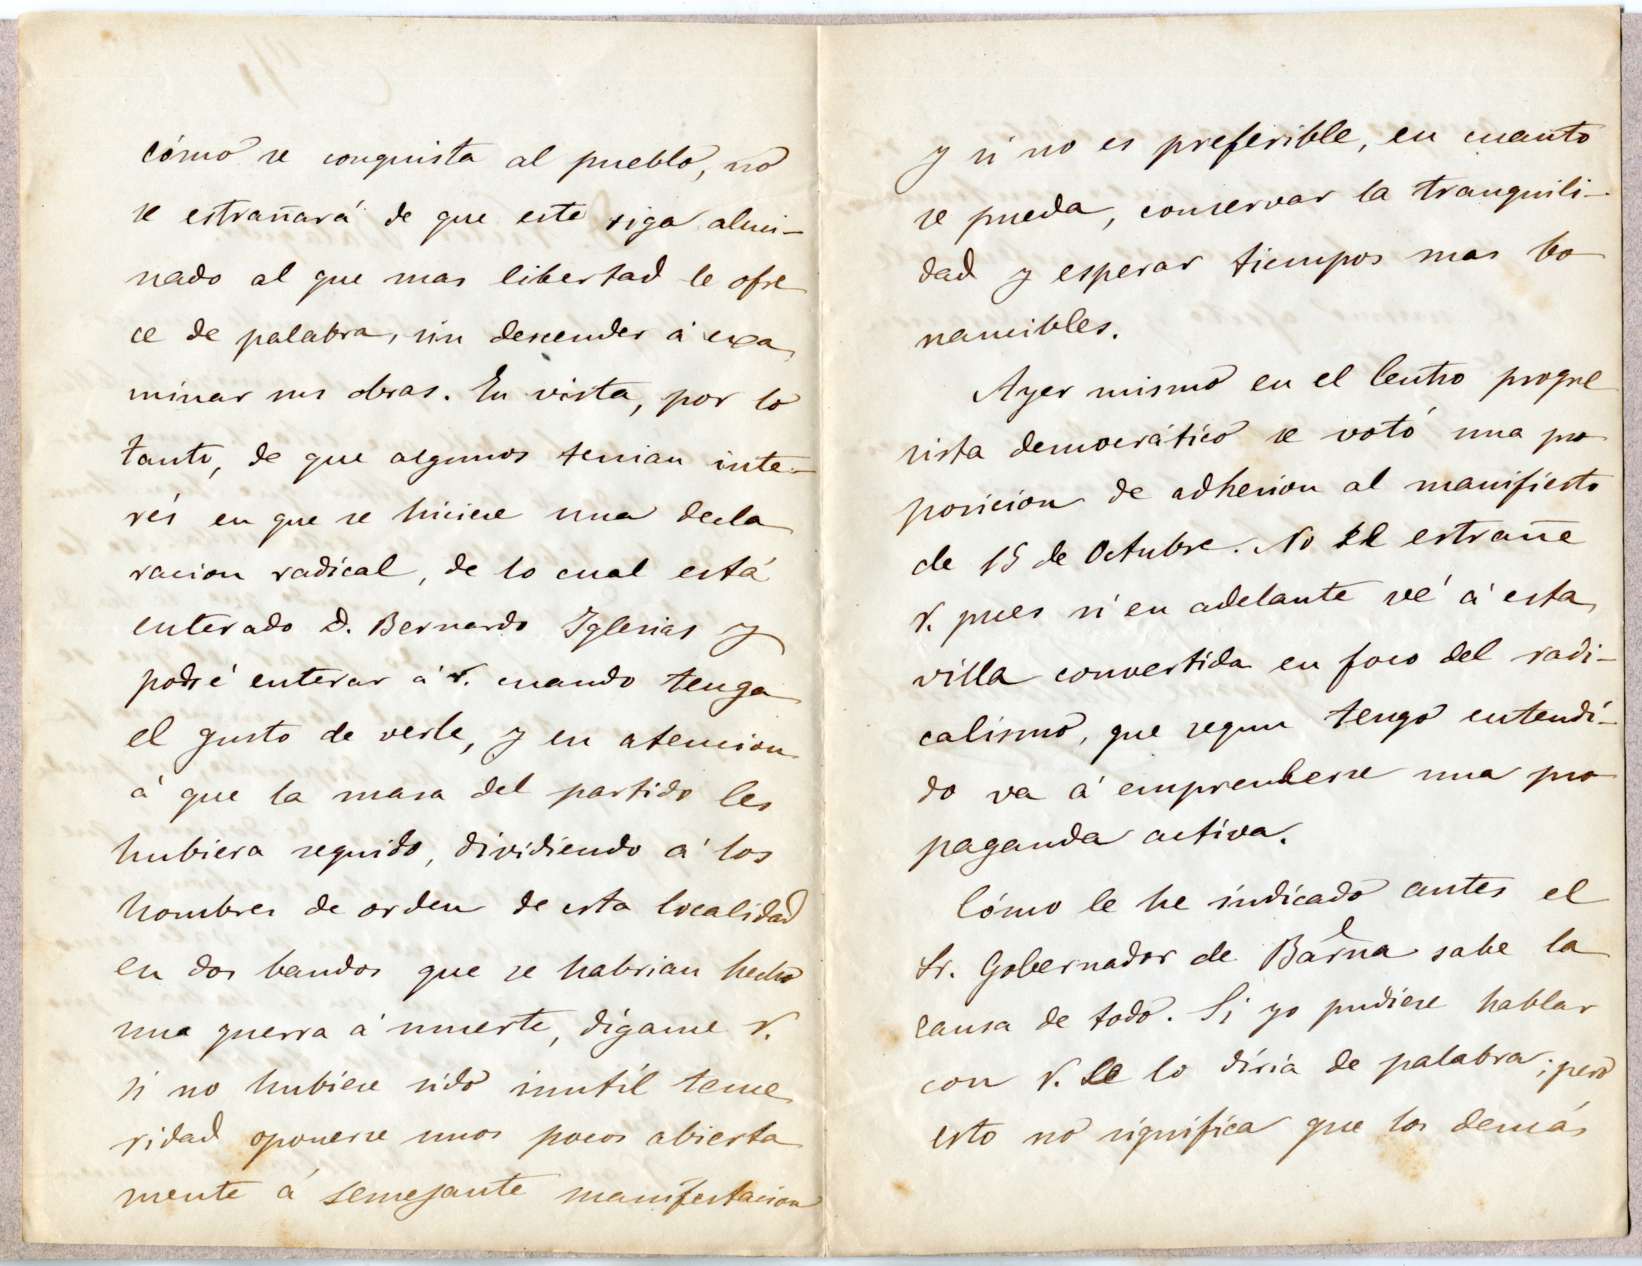 cómo se conquista al pueblo, no
se estrañará de que este siga aluci-
nado al que mas libertad le ofre
ce de palabra, sin descender á exa
minar sus obras. En vista, por lo
tanto, de que algunos tenian inte-
rés en que se hiciese una decla
racion radical, de lo cual está
enterado D. Bernardo Iglesias y
podré enterar á V. cuando tenga
el gusto de verle, y en atencion
á que la masa del partido les
hubiera seguido, dividiendo á los
hombres de orden de esta localidad
en dos bandos que se habrian hecho
una guerra á muerte, dígame V.
si no hubiese sido inutil teme
ridad oponerse unos pocos abierta
mente á semejante manifestacion
y si no es preferible, en cuanto
se pueda, conservar la tranquili-
dad y esperar tiempos mas bo
nancibles.
Ayer mismo en el Centro progre
sista democrático se votó una pro
posicion de adhesion al manifiesto
de 15 de Octubre. No se estrañe
V. pues si en adelante vé á esta
villa convertida en foco del radi-
calismo, que segun tengo entendi-
do va á emprenderse una pro
paganda activa.
Cómo le he indicado antes el
Sr. Gobernador de Barna sabe la
causa de todo. Si yo pudiese hablar
con V. se lo diria de palabra; pero
esto no significa que los demás